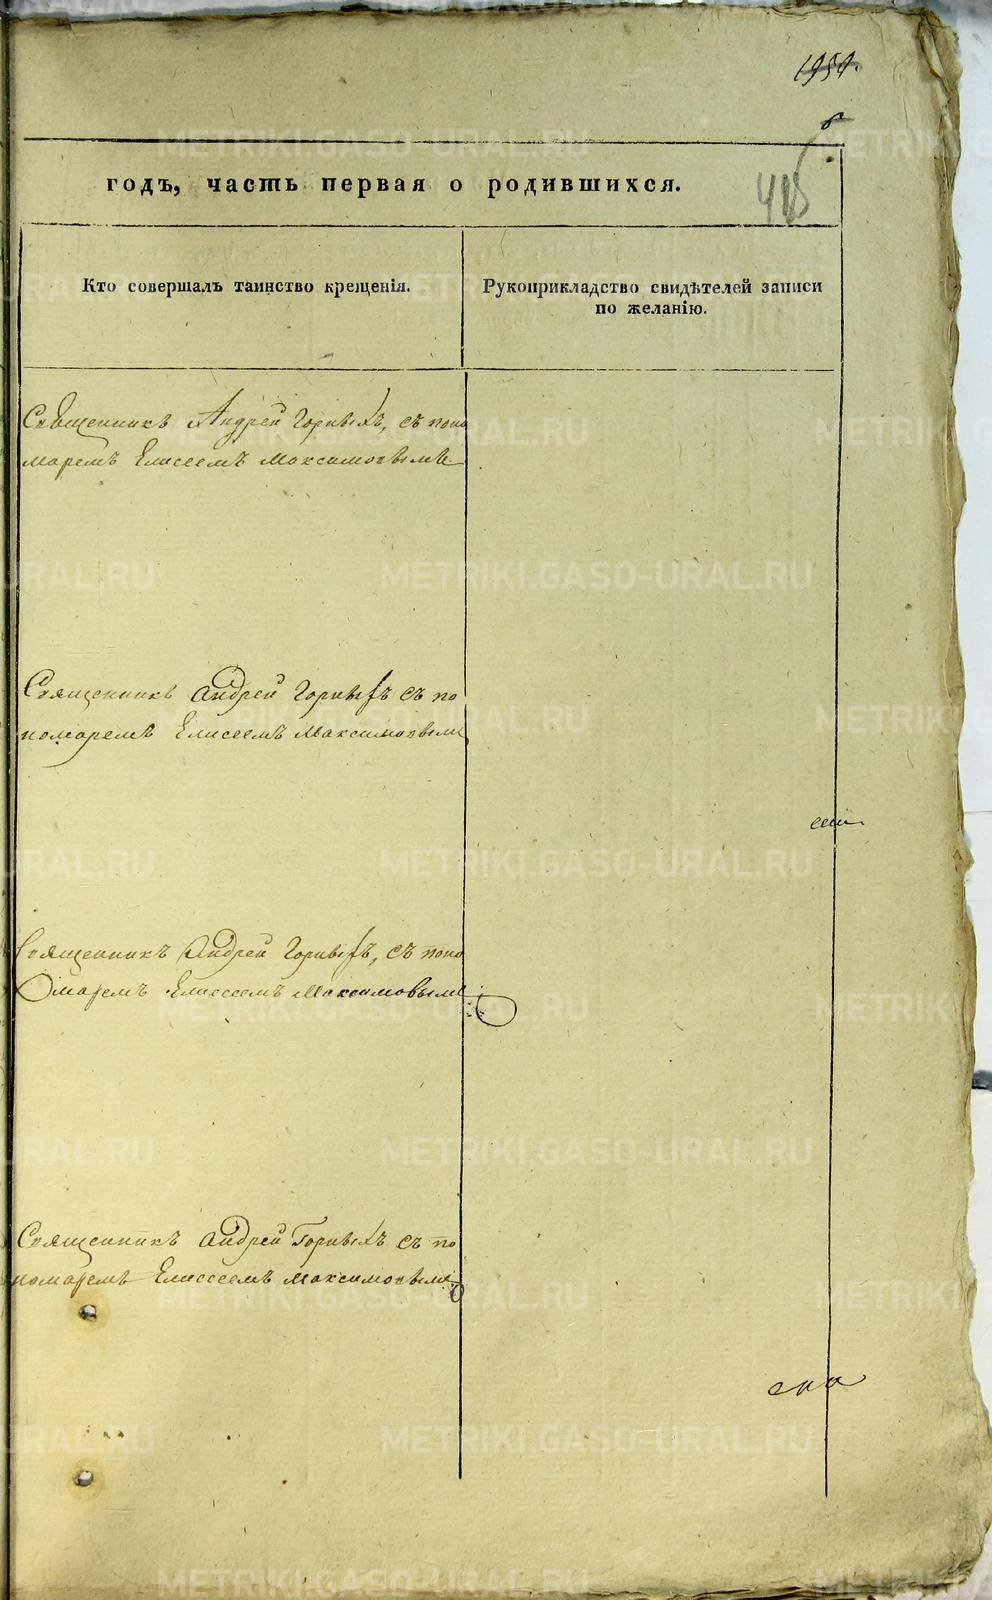 1959.
6
годъ, часть первая о родившихся.
415
Кто совершалъ таинство крещенія.
Рукоприкладство свидѣтелей записи
по желанію.
Священникъ Андрей Горныхъ, съ поно
маремъ Елисеемъ Максимовымъ
Священникъ Андрей Горныхъ съ по
номаремъ Елисеемъ Максимовымъ
Священникъ Андрей Горныхъ, съ поно
маремъ Елисеемъ Максимовымъ
Священникъ Андрей Горныхъ съ по
номаремъ Елиссеемъ Максимовымъ
METRIKI.GASO-URAL.RU